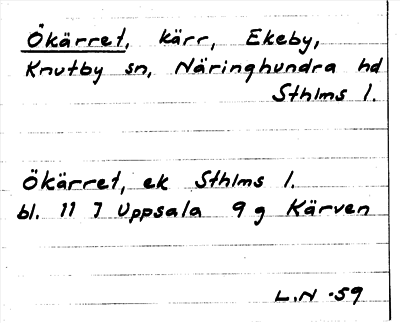 Ökärret, kärr, Ekeby,
Knutby sn, Närdinghundra hd
Sthlms l.
Ökärret, ek Sthlms l.
bl. 11 J Uppsala 9 g Kärven
L.N -59